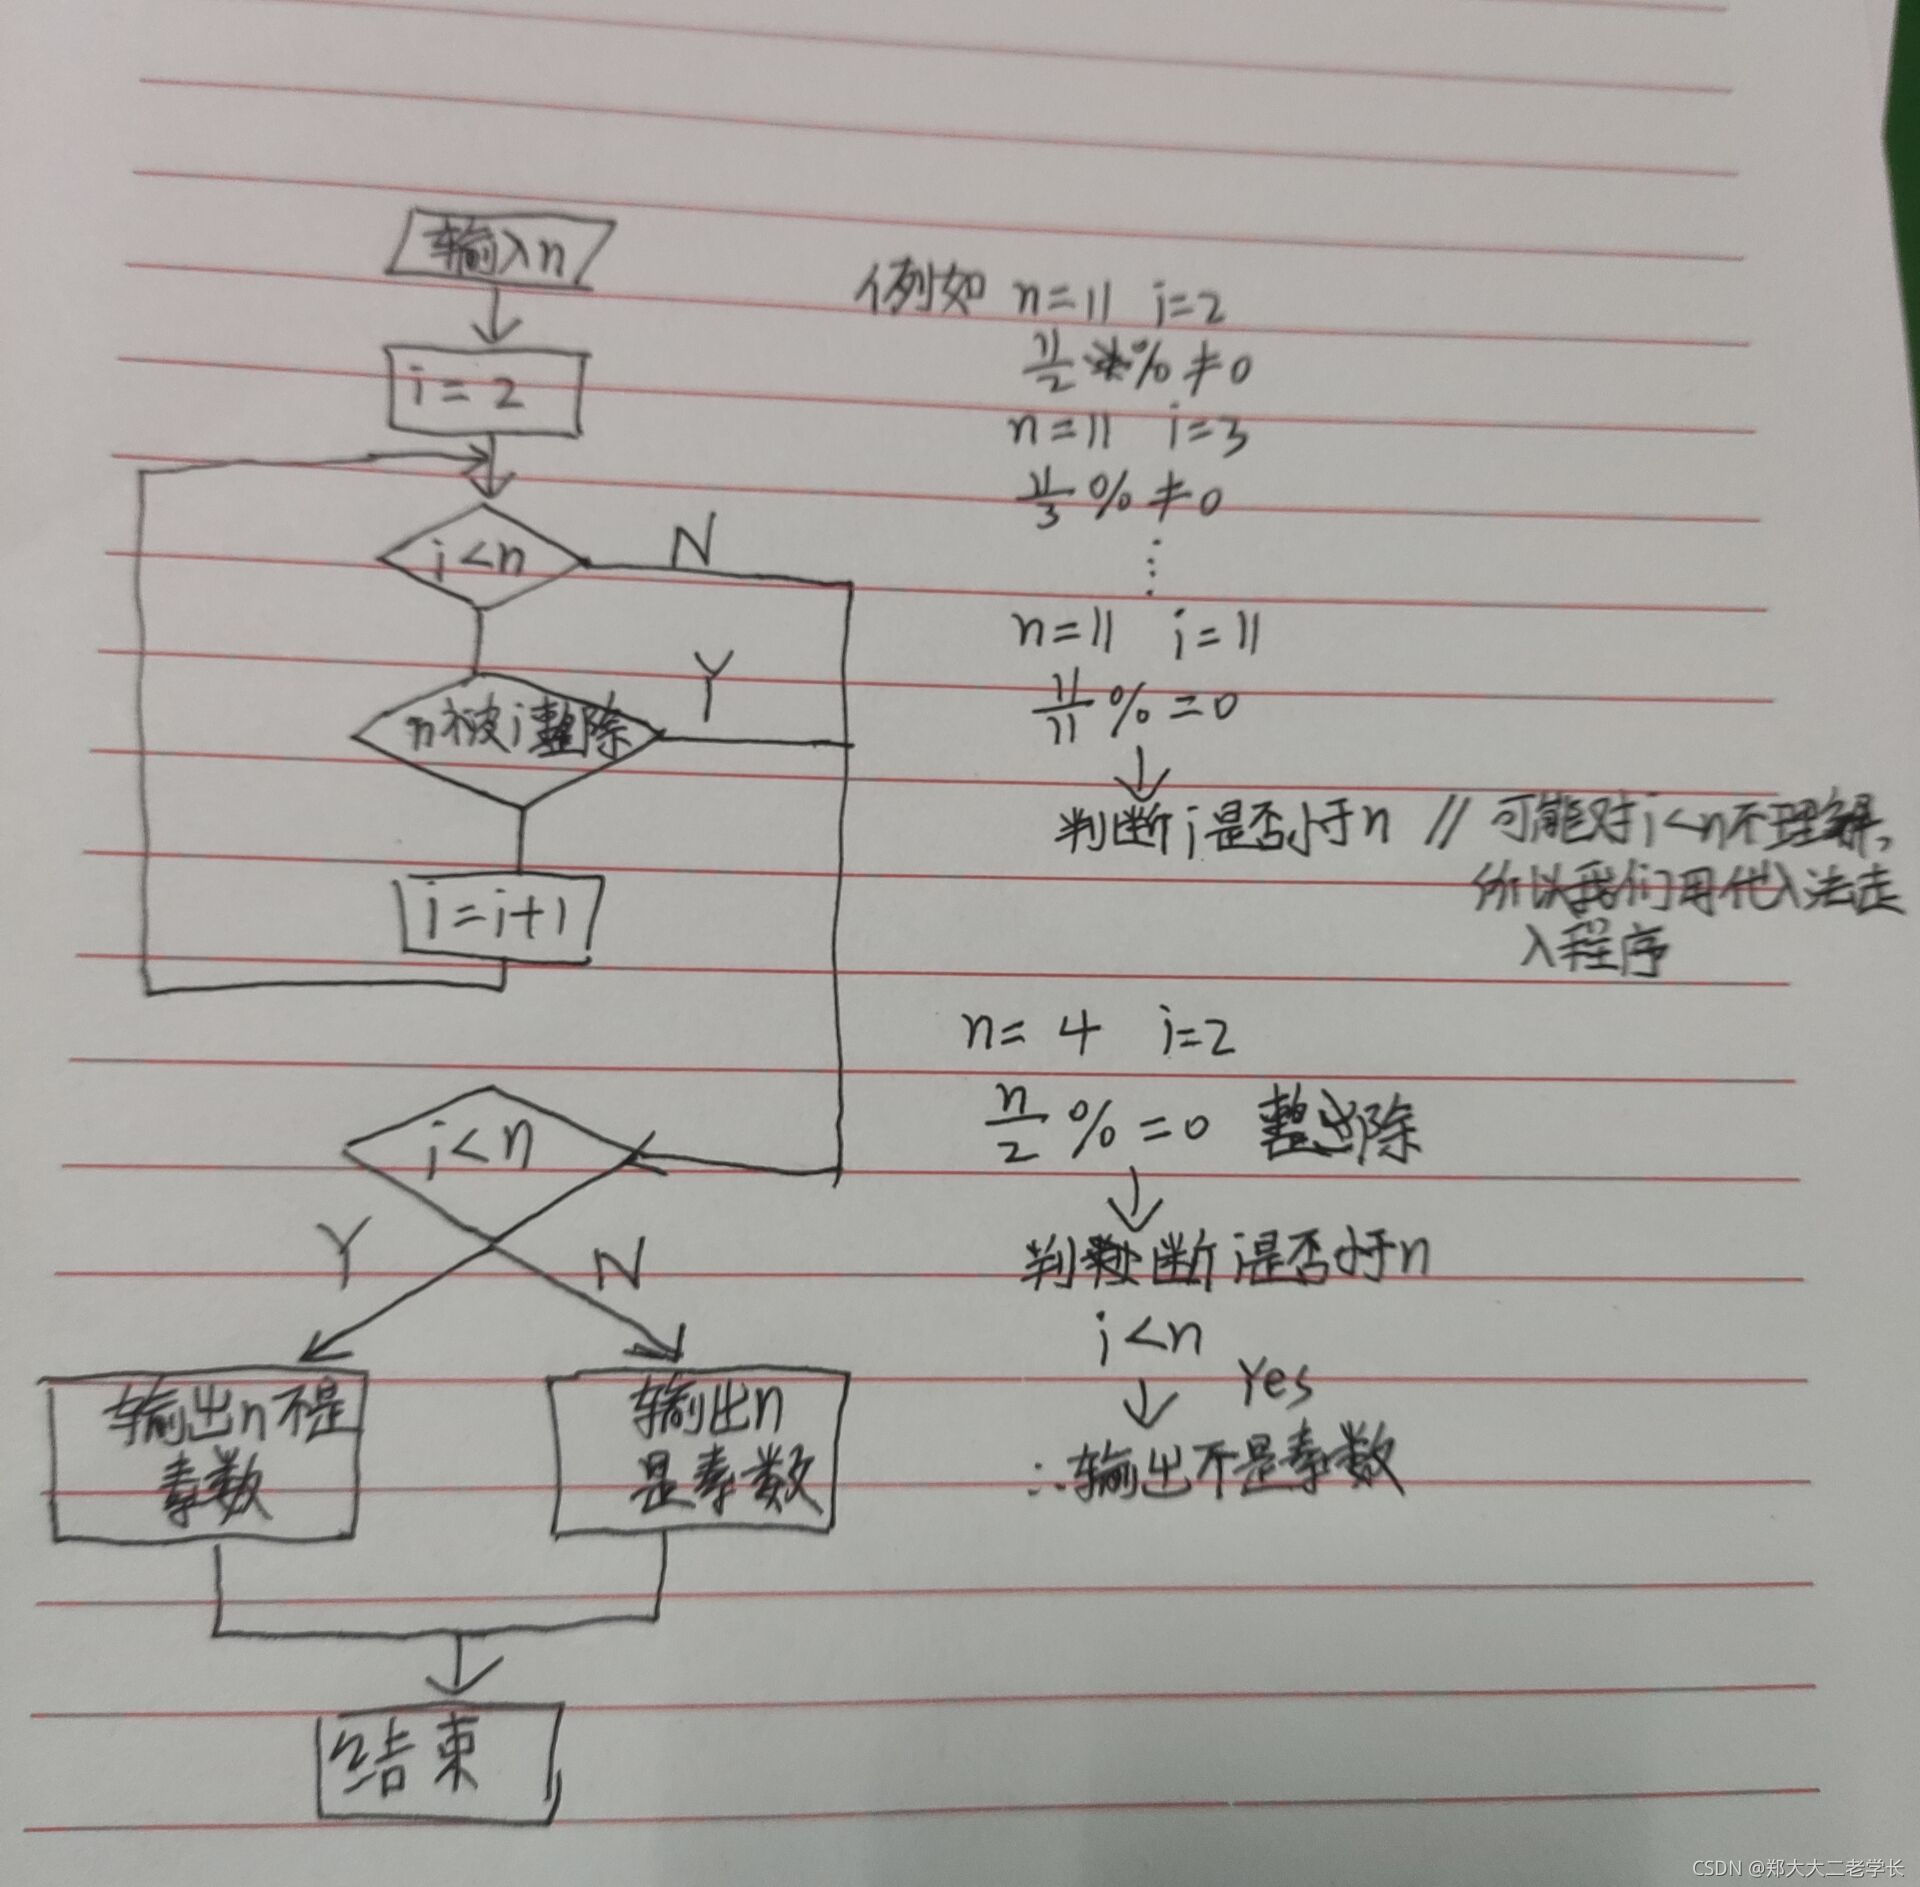 输入n
i=2
i<n
N
n被i整除
Y
i=i+1
i<n
Y
N
输出n不是
素数
输出n
是素数
结束
例如 n=11 i=2
11/2 % ≠0
n=11 i=3
11/3 % ≠0
⋮
n=11 i=11
11/11 % =0
判断i是否小于n // 可能对i<n不理解,
所以我们用代入法走
入程序
n=4 i=2
n/2 % =0 整除
判断i是否小于n
i<n
Yes
∴输出不是素数
CSDN @郑大大二老学长